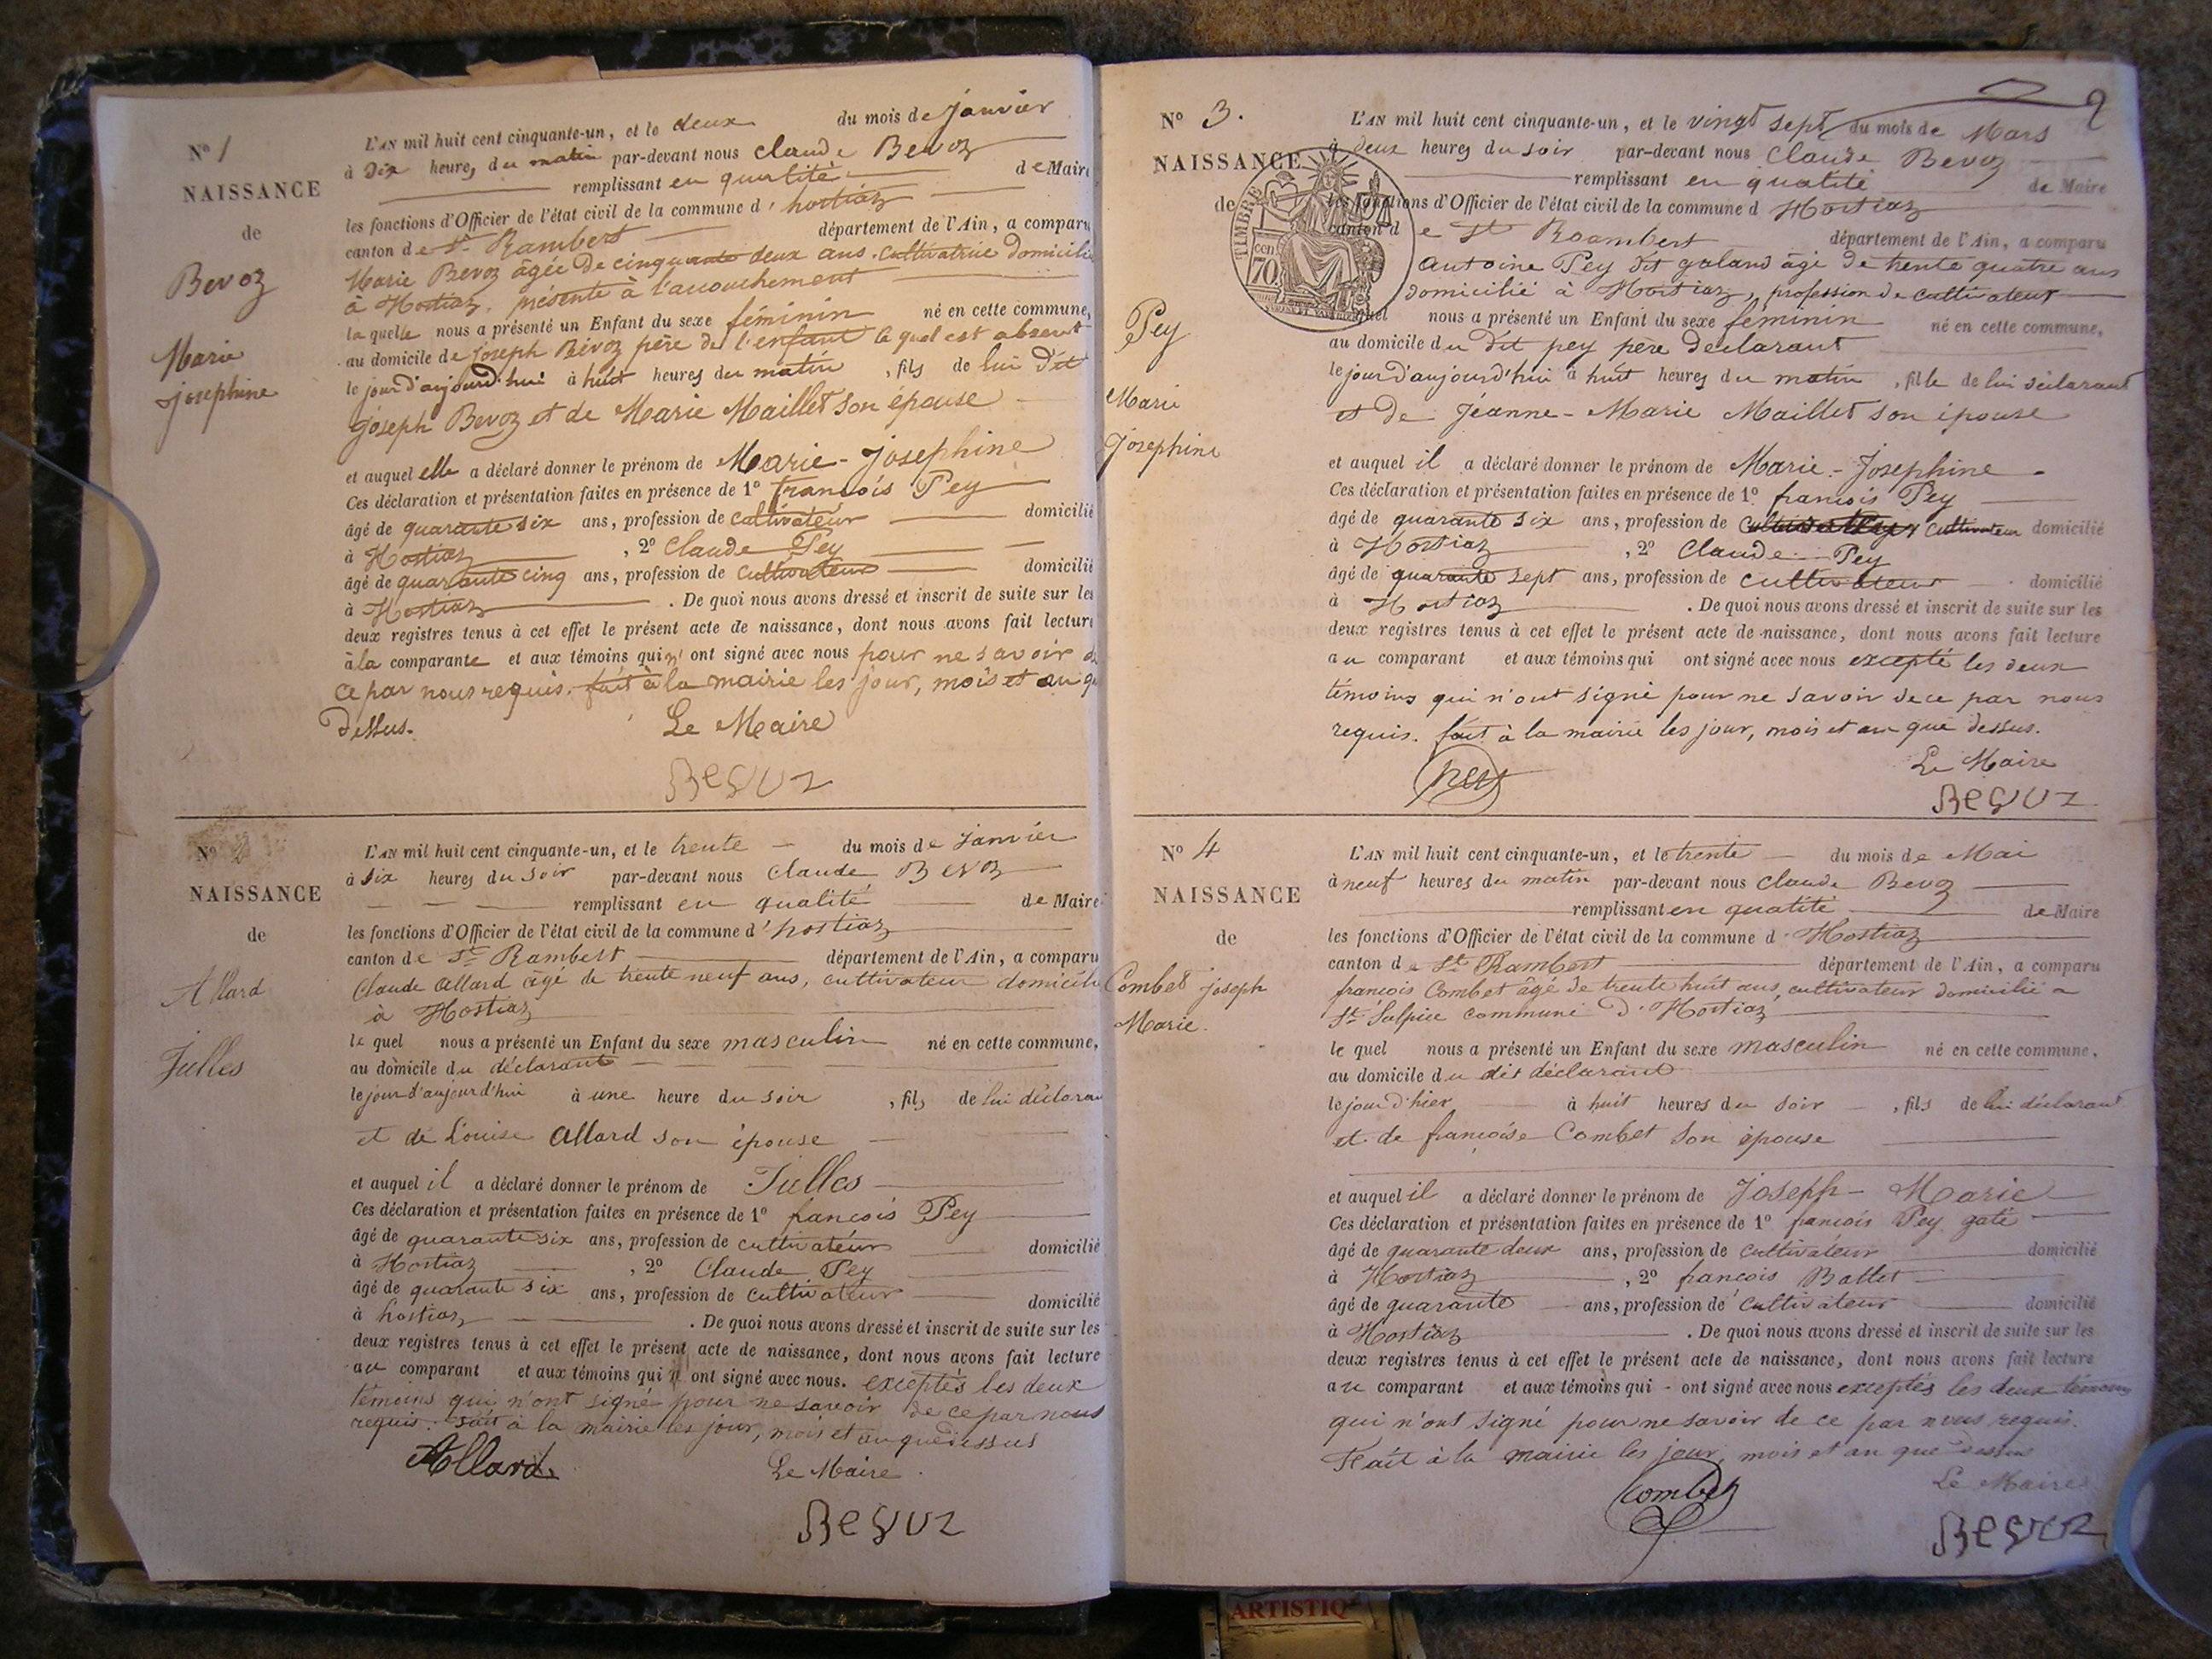 N° 1
NAISSANCE
de
Bevoz
Marie
josephine
L'AN mil huit cent cinquante-un, et le deux du mois de janvier
à Dix heures du matin par-devant nous Claude Bevoz
remplissant en qualité de Maire
les fonctions d'Officier de l'état civil de la commune d'hostiaz
canton de St Rambert département de l'Ain, a comparu
Marie Bevoz âgée de cinquante deux ans. Cultivatrice domicilié
à Hostiaz. présente à l'accouchement
laquelle nous a présenté un Enfant du sexe féminin né en cette commune,
au domicile de joseph Bevoz père de l'enfant le quel est absent
le jour d'aujourd'hui à huit heures du matin, fils de lui d'it
joseph Bevoz et de Marie Maillet son épouse
et auquel elle a déclaré donner le prénom de Marie-Josephine
Ces déclaration et présentation faites en présence de 1° françois Pey
âgé de quarante six ans, profession de cultivateur domicilié
à Hostiaz, 2° Claude Pey
âgé de quarante cinq ans, profession de cultivateur domicilié
à Hostiaz. De quoi nous avons dressé et inscrit de suite sur les
deux registres tenus à cet effet le présent acte de naissance, dont nous avons fait lecture
à la comparante et aux témoins qui n'ont signé avec nous pour ne savoir de
ce par nous requis. fait à la mairie les jour, mois et an que
dessus. Le Maire
Bevoz
N° 2
NAISSANCE
de
Allard
Julles
L'AN mil huit cent cinquante-un, et le trente du mois de janvier
à six heures du soir par-devant nous Claude Bevoz
remplissant en qualité de Maire
les fonctions d'Officier de l'état civil de la commune d'hostiaz
canton de St Rambert département de l'Ain, a comparu
Claude Allard âgé de trente neuf ans, cultivateur domicilié
à Hostiaz
le quel nous a présenté un Enfant du sexe masculin né en cette commune,
au domicile du déclarant
le jour d'aujourd'hui à une heure du soir, fils de lui déclarant
et de Louise Allard son épouse
et auquel il a déclaré donner le prénom de Julles
Ces déclaration et présentation faites en présence de 1° françois Pey
âgé de quarante six ans, profession de cultivateur domicilié
à Hostiaz, 2° Claude Pey
âgé de quarante six ans, profession de cultivateur domicilié
à hostiaz. De quoi nous avons dressé et inscrit de suite sur les
deux registres tenus à cet effet le présent acte de naissance, dont nous avons fait lecture
au comparant et aux témoins qui ont signé avec nous. exceptés les deux
témoins qui n'ont signé pour ne savoir de ce par nous
requis. fait à la mairie les jour, mois et an que dessus
Allard Le Maire
Bevoz
2
N° 3.
NAISSANCE
de
Pey
Marie
Josephine
TIMBRE
70 cen
L'AN mil huit cent cinquante-un, et le vingt sept du mois de Mars
à deux heures du soir par-devant nous Claude Bevoz
remplissant en qualité de Maire
les fonctions d'Officier de l'état civil de la commune d Hostiaz
canton de St Rambert département de l'Ain, a comparu
Antoine Pey dit galand âgé de trente quatre ans
domicilié à Hostiaz, profession de cultivateur
lequel nous a présenté un Enfant du sexe féminin né en cette commune,
au domicile du dit pey père déclarant
le jour d'aujourd'hui à huit heures du matin, fille de lui déclarant
et de Jeanne-Marie Maillet son épouse
et auquel il a déclaré donner le prénom de Marie-Josephine
Ces déclaration et présentation faites en présence de 1° françois Pey
âgé de quarante six ans, profession de cultivateur domicilié
à Hostiaz, 2° Claude Pey
âgé de quarante sept ans, profession de cultivateur domicilié
à Hostiaz. De quoi nous avons dressé et inscrit de suite sur les
deux registres tenus à cet effet le présent acte de naissance, dont nous avons fait lecture
au comparant et aux témoins qui ont signé avec nous excepté les deux
témoins qui n'ont signé pour ne savoir de ce par nous
requis. fait à la mairie les jour, mois et an que dessus.
Le Maire
Pey Bevoz
N° 4
NAISSANCE
de
Combet joseph
Marie.
L'AN mil huit cent cinquante-un, et le trente du mois de Mai
à neuf heures du matin par-devant nous Claude Bevoz
remplissant en qualité de Maire
les fonctions d'Officier de l'état civil de la commune d'Hostiaz
canton de St Rambert département de l'Ain, a comparu
françois Combet âgé de trente huit ans, cultivateur domicilié à
St Sulpice commune d'Hostiaz
le quel nous a présenté un Enfant du sexe masculin né en cette commune,
au domicile du dit déclarant
le jour d'hier à huit heures du soir, fils de lui déclarant
et de françoise Combet son épouse
et auquel il a déclaré donner le prénom de Joseph-Marie
Ces déclaration et présentation faites en présence de 1° françois Pey gaté
âgé de quarante deux ans, profession de cultivateur domicilié
à Hostiaz, 2° françois Ballet
âgé de quarante ans, profession de cultivateur domicilié
à Hostiaz. De quoi nous avons dressé et inscrit de suite sur les
deux registres tenus à cet effet le présent acte de naissance, dont nous avons fait lecture
au comparant et aux témoins qui ont signé avec nous exceptés les deux témoins
qui n'ont signé pour ne savoir de ce par nous requis.
Fait à la mairie les jour, mois et an que dessus
Le Maire
Combet Bevoz
ARTISTIQ